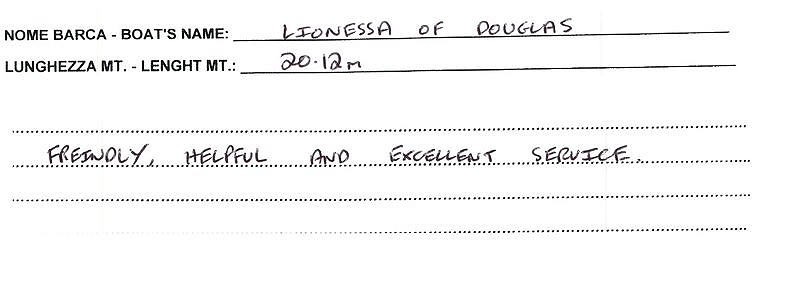 NOME BARCA - BOAT'S NAME: LIONESSA OF DOUGLAS
LUNGHEZZA MT. - LENGHT MT.: 20.12m
FREINDLY, HELPFUL AND EXCELLENT SERVICE.